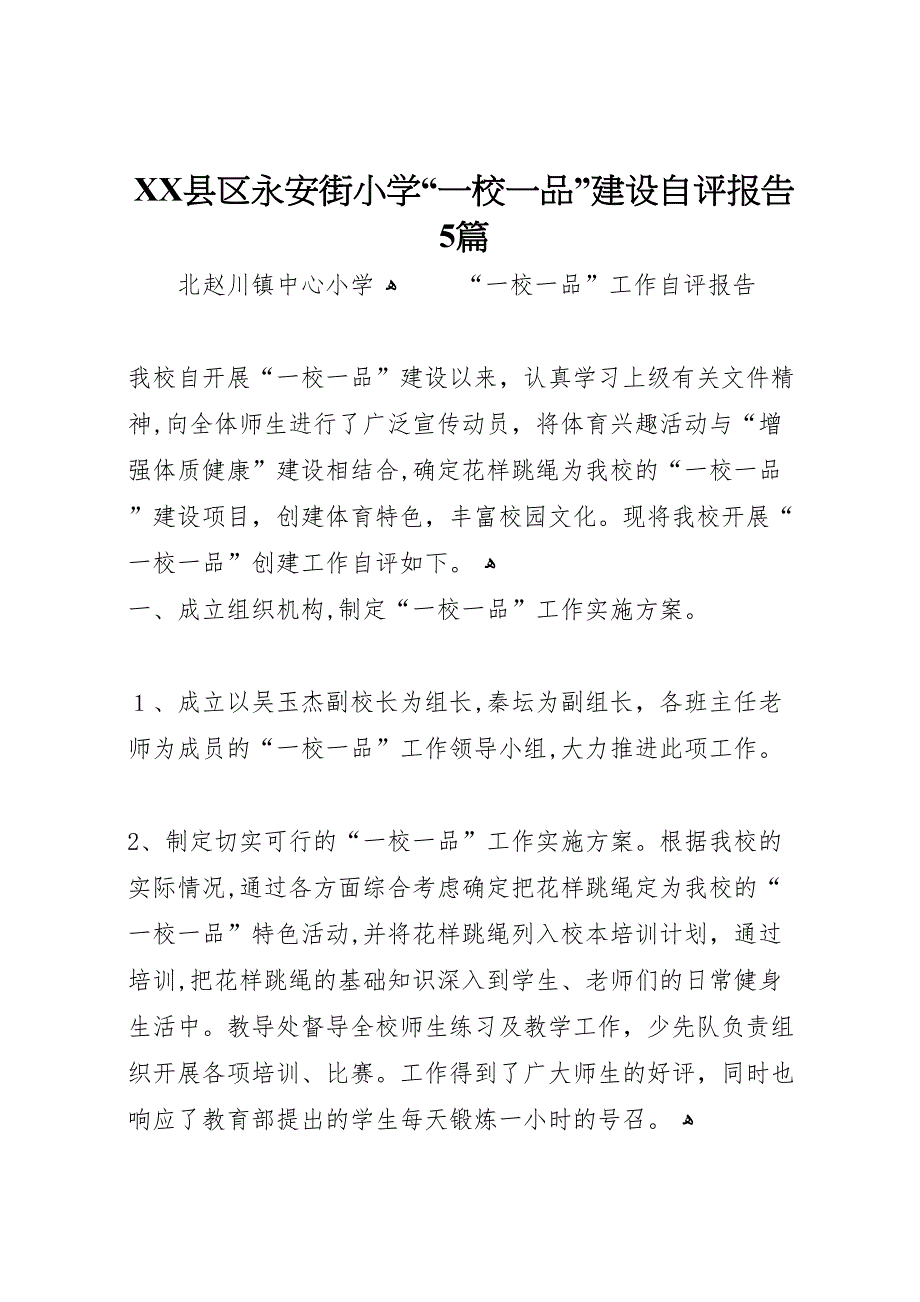 XX县区永安街小学“一校一品”建设自评报告
5篇
北赵川镇中心小学 ﻫ “一校一品”工作自评报告
我校自开展“一校一品”建设以来，认真学习上级有关文件精
神,向全体师生进行了广泛宣传动员，将体育兴趣活动与“增
强体质健康”建设相结合,确定花样跳绳为我校的“一校一品
”建设项目，创建体育特色，丰富校园文化。现将我校开展“
一校一品”创建工作自评如下。 ﻫ
一、成立组织机构,制定“一校一品”工作实施方案。
１、成立以吴玉杰副校长为组长,秦坛为副组长，各班主任老
师为成员的“一校一品”工作领导小组,大力推进此项工作。
2、制定切实可行的“一校一品”工作实施方案。根据我校的
实际情况,通过各方面综合考虑确定把花样跳绳定为我校的“
一校一品”特色活动,并将花样跳绳列入校本培训计划，通过
培训,把花样跳绳的基础知识深入到学生、老师们的日常健身
生活中。教导处督导全校师生练习及教学工作，少先队负责组
织开展各项培训、比赛。工作得到了广大师生的好评，同时也
响应了教育部提出的学生每天锻炼一小时的号召。 ﻫ